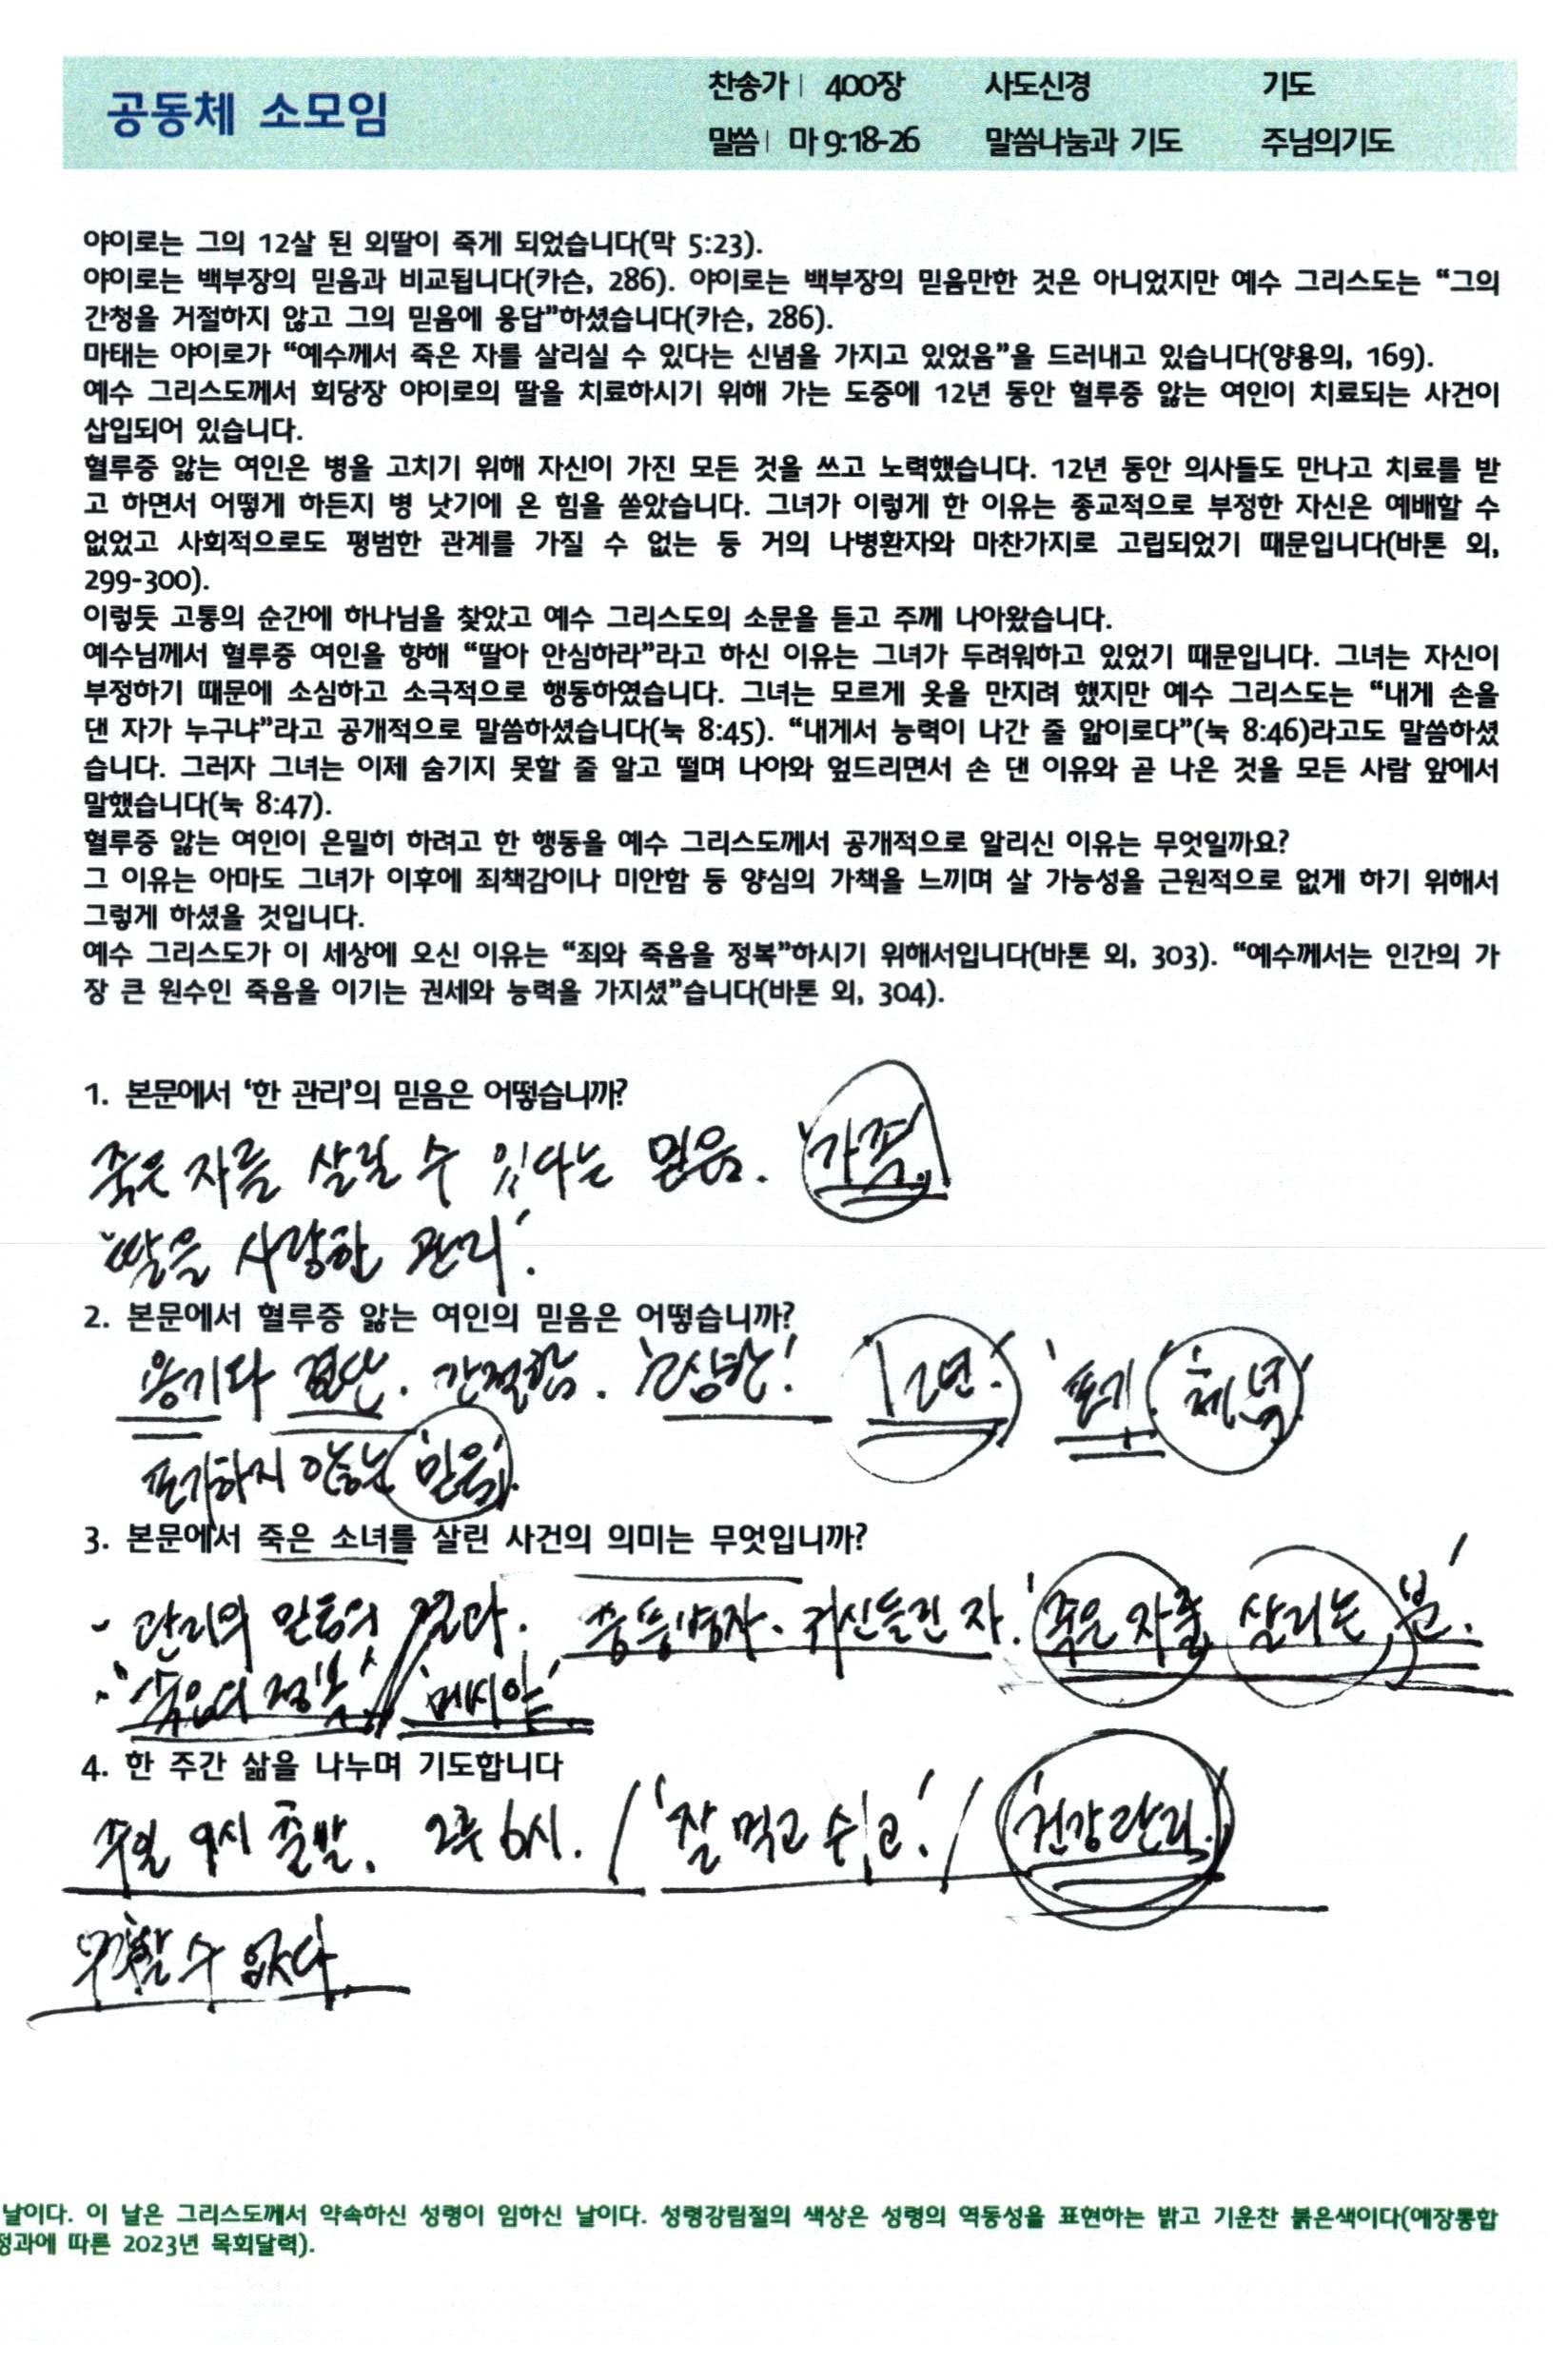 공동체 소모임
찬송가 | 400장 사도신경 기도
말씀 | 마 9:18-26 말씀나눔과 기도 주님의기도
야이로는 그의 12살 된 외딸이 죽게 되었습니다(막 5:23).
야이로는 백부장의 믿음과 비교됩니다(카슨, 286). 야이로는 백부장의 믿음만한 것은 아니었지만 예수 그리스도는 “그의
간청을 거절하지 않고 그의 믿음에 응답”하셨습니다(카슨, 286).
마태는 야이로가 “예수께서 죽은 자를 살리실 수 있다는 신념을 가지고 있었음”을 드러내고 있습니다(양용의, 169).
예수 그리스도께서 회당장 야이로의 딸을 치료하시기 위해 가는 도중에 12년 동안 혈루증 앓는 여인이 치료되는 사건이
삽입되어 있습니다.
혈루증 앓는 여인은 병을 고치기 위해 자신이 가진 모든 것을 쓰고 노력했습니다. 12년 동안 의사들도 만나고 치료를 받
고 하면서 어떻게 하든지 병 낫기에 온 힘을 쏟았습니다. 그녀가 이렇게 한 이유는 종교적으로 부정한 자신은 예배할 수
없었고 사회적으로도 평범한 관계를 가질 수 없는 등 거의 나병환자와 마찬가지로 고립되었기 때문입니다(바톤 외,
299-300).
이렇듯 고통의 순간에 하나님을 찾았고 예수 그리스도의 소문을 듣고 주께 나아왔습니다.
예수님께서 혈루증 여인을 향해 “딸아 안심하라”라고 하신 이유는 그녀가 두려워하고 있었기 때문입니다. 그녀는 자신이
부정하기 때문에 소심하고 소극적으로 행동하였습니다. 그녀는 모르게 옷을 만지려 했지만 예수 그리스도는 “내게 손을
댄 자가 누구냐”라고 공개적으로 말씀하셨습니다(눅 8:45). “내게서 능력이 나간 줄 앎이로다”(눅 8:46)라고도 말씀하셨
습니다. 그러자 그녀는 이제 숨기지 못할 줄 알고 떨며 나아와 엎드리면서 손 댄 이유와 곧 나은 것을 모든 사람 앞에서
말했습니다(눅 8:47).
혈루증 앓는 여인이 은밀히 하려고 한 행동을 예수 그리스도께서 공개적으로 알리신 이유는 무엇일까요?
그 이유는 아마도 그녀가 이후에 죄책감이나 미안함 등 양심의 가책을 느끼며 살 가능성을 근원적으로 없게 하기 위해서
그렇게 하셨을 것입니다.
예수 그리스도가 이 세상에 오신 이유는 “죄와 죽음을 정복”하시기 위해서입니다(바톤 외, 303). “예수께서는 인간의 가
장 큰 원수인 죽음을 이기는 권세와 능력을 가지셨”습니다(바톤 외, 304).
1. 본문에서 ‘한 관리’의 믿음은 어떻습니까?
죽은 자를 살릴 수 있다는 믿음.
‘딸을 사랑한 관리’.
2. 본문에서 혈루증 앓는 여인의 믿음은 어떻습니까?
용기다 결단. 간절함. 12년. ‘포기 체념’
포기하지 않는 ‘믿음’.
3. 본문에서 죽은 소녀를 살린 사건의 의미는 무엇입니까?
- 관리의 믿음의 결과. 중풍병자. 귀신들린 자. ‘죽은 자를 살리는 분.’
- ‘죽음의 정복’ // ‘메시야’
4. 한 주간 삶을 나누며 기도합니다
주일 9시 출발. 오후 6시. / ‘잘 먹고 쉬고.’ / ‘건강관리.’
무리할 수 없다.
날이다. 이 날은 그리스도께서 약속하신 성령이 임하신 날이다. 성령강림절의 색상은 성령의 역동성을 표현하는 밝고 기운찬 붉은색이다(예장통합
정과에 따른 2023년 목회달력).